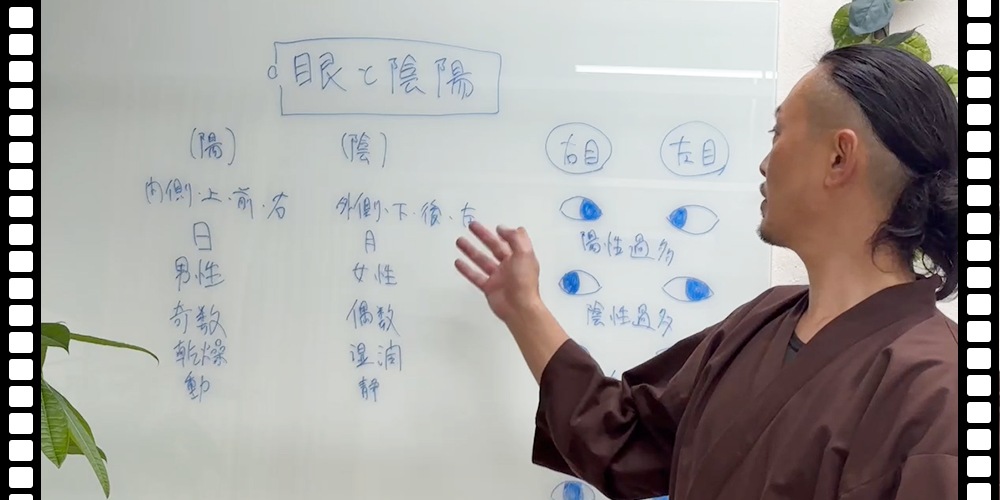 眼と陰陽
(陽)
内側・上・前・右
日
男性
奇数
乾燥
動
(陰)
外側・下・後・左
月
女性
偶数
湿潤
静
右目
左目
陽性過多
陰性過多